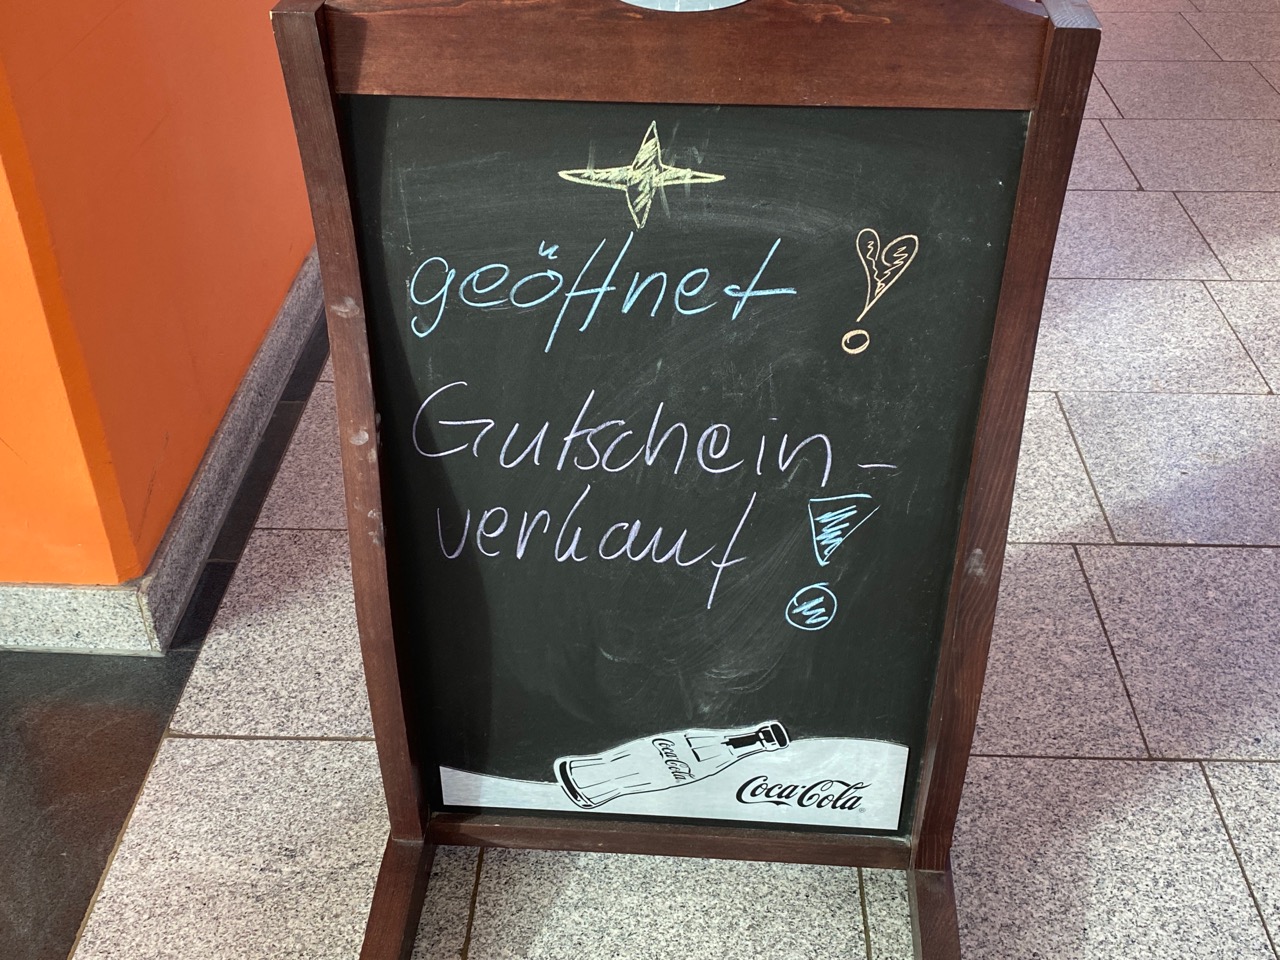 geöffnet !
Gutschein-
verkauf !
Coca-Cola
Coca-Cola